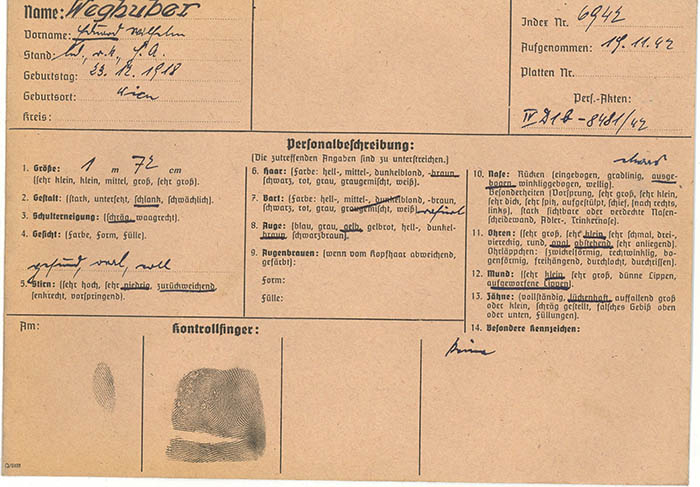 Name: Weghuber
Vorname: Eduard Wilhelm
Stand: led., r.k., H.A.
Geburtstag: 23. 12. 1918
Geburtsort: Wien
Kreis:
Index Nr. 6942
Aufgenommen: 19.11.42
Platten Nr.
Pers.-Akten:
IV D1b-8481/42
Personalbeschreibung:
(Die zutreffenden Angaben sind zu unterstreichen.)
1. Größe: 1 m 72 cm
(sehr klein, klein, mittel, groß, sehr groß).
2. Gestalt: (stark, untersetzt, schlank, schwächlich).
3. Schulterneigung: (schräg, waagrecht).
4. Gesicht: (Farbe, Form, Fülle).
gesund, oval, voll
5. Stirn: (sehr hoch, sehr niedrig, zurückweichend,
senkrecht, vorspringend).
6. Haar: (Farbe: hell-, mittel-, dunkelblond, -braun,
schwarz, rot, grau, graugemischt, weiß).
7. Bart: (Farbe: hell-, mittel-, dunkelblond, -braun,
schwarz, rot, grau, graugemischt, weiß) rasiert
8. Auge: (blau, grau, gelb, gelbrot, hell-, dunkel-
braun, schwarzbraun).
9. Augenbrauen: (wenn vom Kopfhaar abweichend,
gefärbt):
Form:
Fülle:
10. Nase: Rücken (eingebogen, gradlinig, ausge-
bogen, winkliggebogen, wellig).
Besonderheiten (Vorsprung, sehr groß, sehr klein,
sehr dick, sehr spitz, aufgestülpt, schief, (nach rechts,
links), stark sichtbare oder verdeckte Nasen-
scheidewand, Adler-, Trinkernase).
11. Ohren: (sehr groß, sehr klein, sehr schmal, drei-
viereckig, rund, oval, abstehend, sehr anliegend).
Ohrläppchen: (zwickelförmig, rechtwinklig, bo-
genförmig, freihängend, durchlocht, durchrissen).
12. Mund: (sehr klein, sehr groß, dünne Lippen,
aufgeworfene Lippen).
13. Zähne: (vollständig, lückenhaft, auffallend groß
oder klein, schräg gestellt, falsches Gebiß oben
oder unten, Füllungen).
14. Besondere Kennzeichen:
keine
Am:
Kontrollfinger: